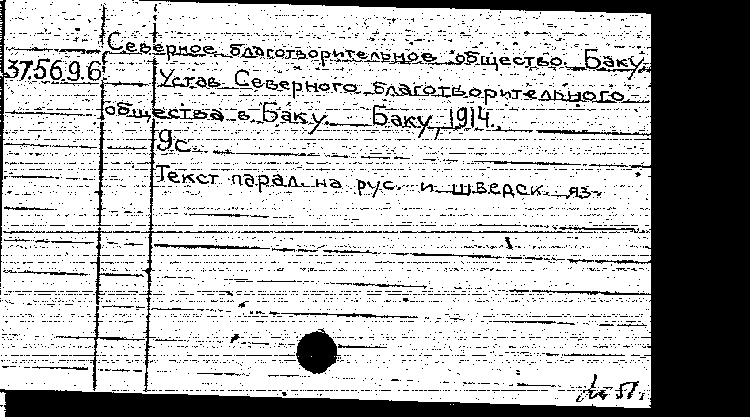 Северное благотворительное общество. Баку.
37569.6
Устав Северного благотворительного
общества в Баку. Баку, 1914.
9с.
Текст парал. на рус. и шведск. яз.